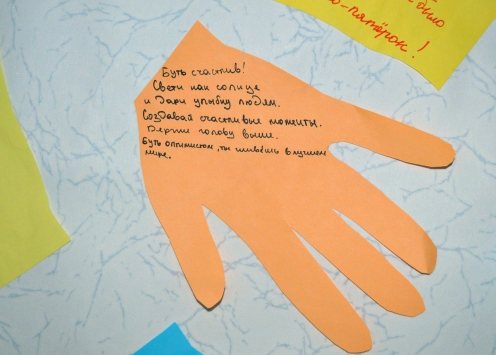 было
-пятёрок!
Будь счастлив!
Свети как солнце
и Дари улыбку людям.
Создавай счастливые моменты.
Держи голову выше.
Будь оптимистом, ты живёшь в лучшем
мире.